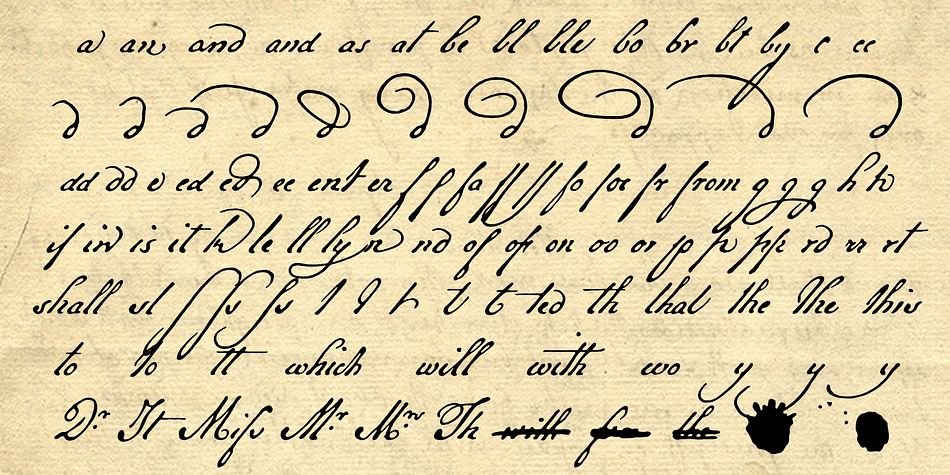 a an and and as at be bl ble bo br bt by c cc
d d d d d d d d d d
dd dd e ed ed ee ent er f f fa ff ff fo for fr from g g g h h
if in is it k le ll ly n nd of of on oo or p p pp rd rr rt
shall sl ſſ ſs ſs t t t t t ted th that the the this
to to tt which will with wo y y y
Dr. It Miſs Mr. Mrs. Th with for the